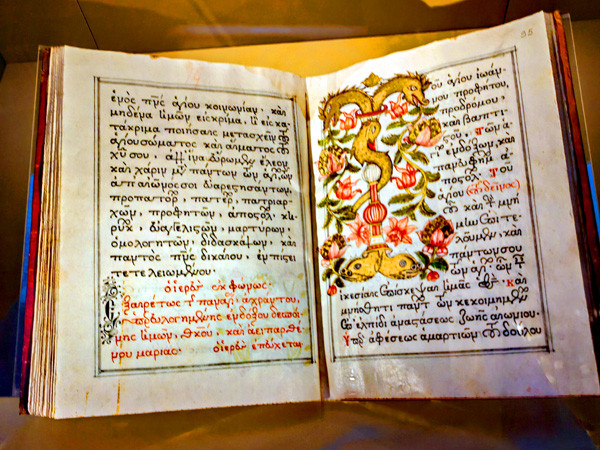 ἑνὸς πν̅ς ἁγίου κοινωνίαν. καὶ
μηδένα ἡμῶν εἰς κρίμα, ἢ εἰς κα
τάκριμα ποιήσαις μετασχεῖν τοῦ
ἁγίου σώματος καὶ αἵματος τοῦ
χυ̅ σου. ἀλλ' ἵνα εὕρωμεν ἔλεον
καὶ χάριν μετὰ πάντων τῶν ἁγίων τῶν
ἀπ' αἰῶνός σοι εὐαρεστησάντων,
προπατόρων, πατέρων, πατριαρ
χῶν, προφητῶν, ἀποστόλων, κη
ρύκων, εὐαγγελιστῶν, μαρτύρων,
ὁμολογητῶν, διδασκάλων, καὶ
παντὸς πν̅ς δικαίου, ἐν πίστει
τετελειωμένου.
ὁ ἱερεὺς ἐκφώνως.
Ἐξαιρέτως τῆς παναγίας ἀχράντου,
ὑπερευλογημένης ἐνδόξου δεσποί
νης ἡμῶν, θκ̅ου, καὶ ἀειπαρθέ
νου μαρίας. ὁ ἱερεὺς ἐπεύχεται
τοῦ ἁγίου ἰωάν
νου προφήτου,
προδρόμου,
καὶ βαπτι
στοῦ. τῶν ἁ
γίων ἐνδόξων, καὶ
πανευφήμων ἀ
ποστόλων. τοῦ
ἁγίου (τοῦ δεῖνος)
οὗ καὶ τὴν μνή
μην ἐπιτε
λοῦμεν, καὶ
πάντων σου
τῶν ἁγίων. ὧν ταῖς
ἱκεσίαις ἐπίσκεψαι ἡμᾶς ὁ θς̅. καὶ
μνήσθητι πάντων τῶν κεκοιμημένων
ἐπ' ἐλπίδι ἀναστάσεως ζωῆς αἰωνίου.
Ὑπὲρ ἀφέσεως ἁμαρτιῶν τοῦ δούλου